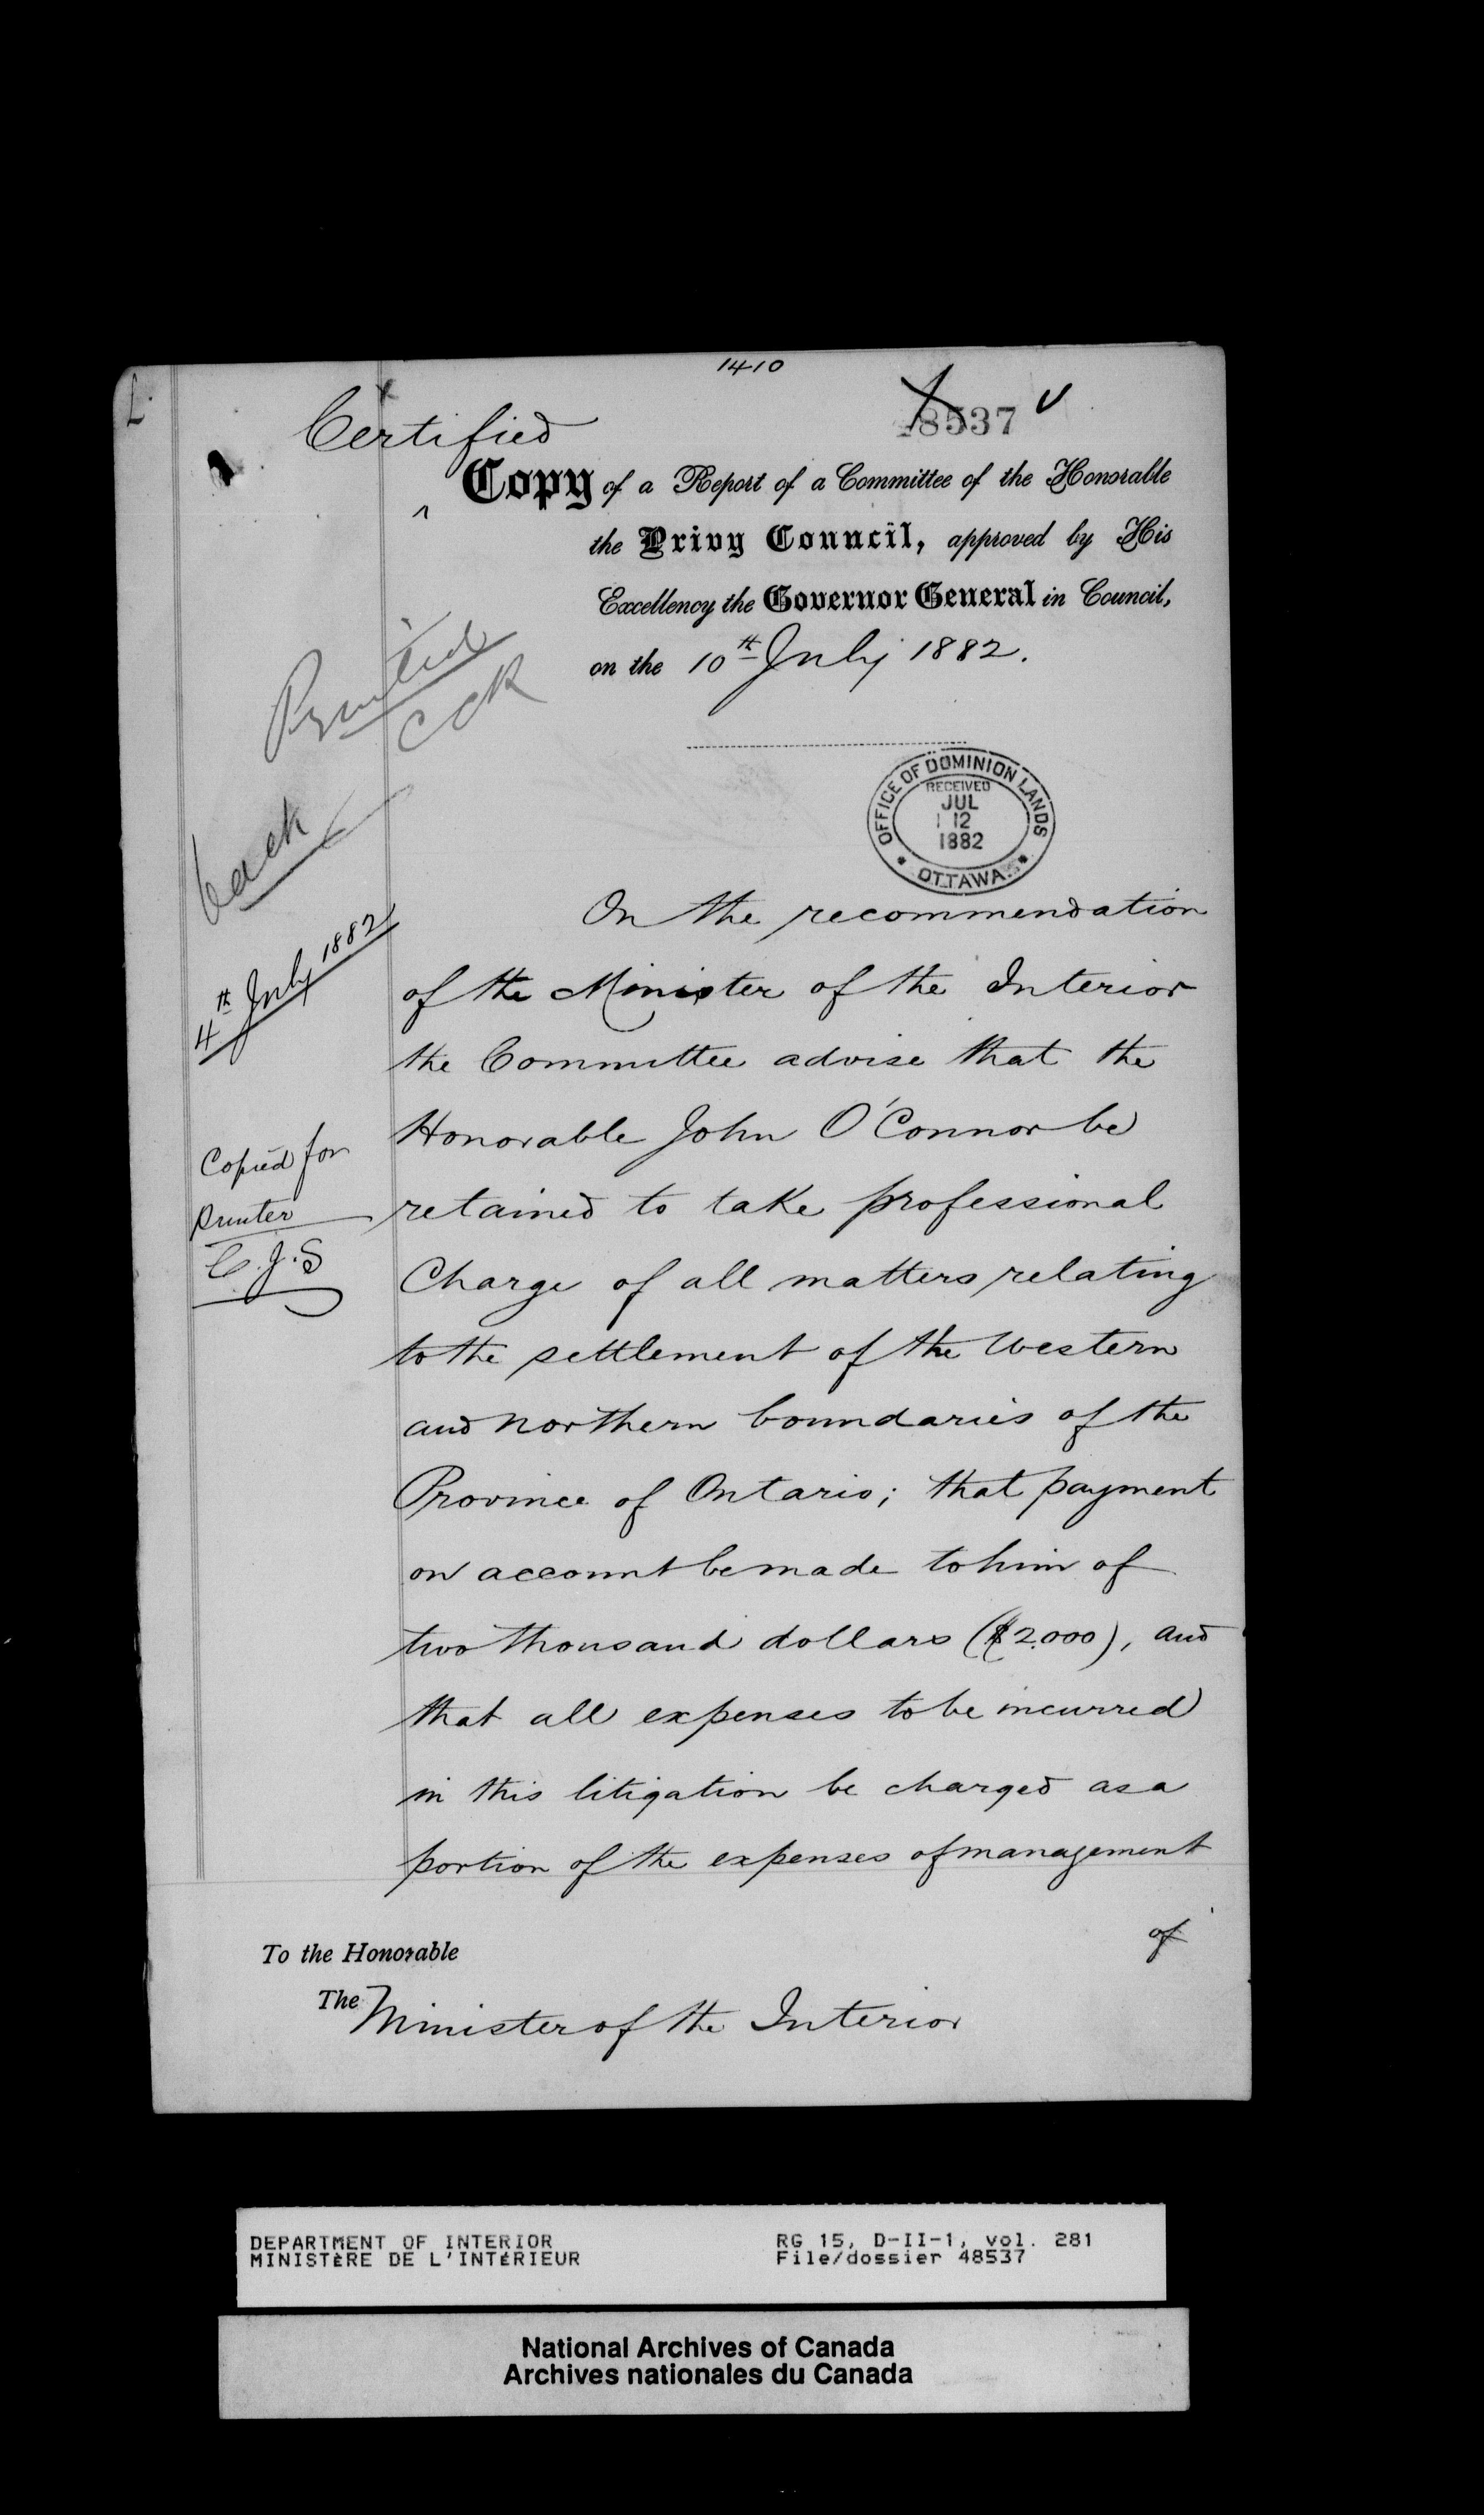 1410
48537
Certified
Copy of a Report of a Committee of the Honorable
the Privy Council, approved by His
Excellency the Governor General in Council,
on the 10th July 1882.
Printed
CCR
back
4th July 1882
OFFICE OF DOMINION LANDS
RECEIVED
JUL
12
1882
OTTAWA
Copied for
Printer
C.J.S
On the recommendation
of the Minister of the Interior
the Committee advise that the
Honorable John O'Connor be
retained to take professional
Charge of all matters relating
to the settlement of the Western
and northern boundaries of the
Province of Ontario; that payment
on account be made to him of
two thousand dollars ($2.000), and
that all expenses to be incurred
in this litigation be charged as a
portion of the expenses of management
of
To the Honorable
The Minister of the Interior
DEPARTMENT OF INTERIOR
MINISTÈRE DE L'INTÉRIEUR
RG 15, D-II-1, vol. 281
File/dossier 48537
National Archives of Canada
Archives nationales du Canada